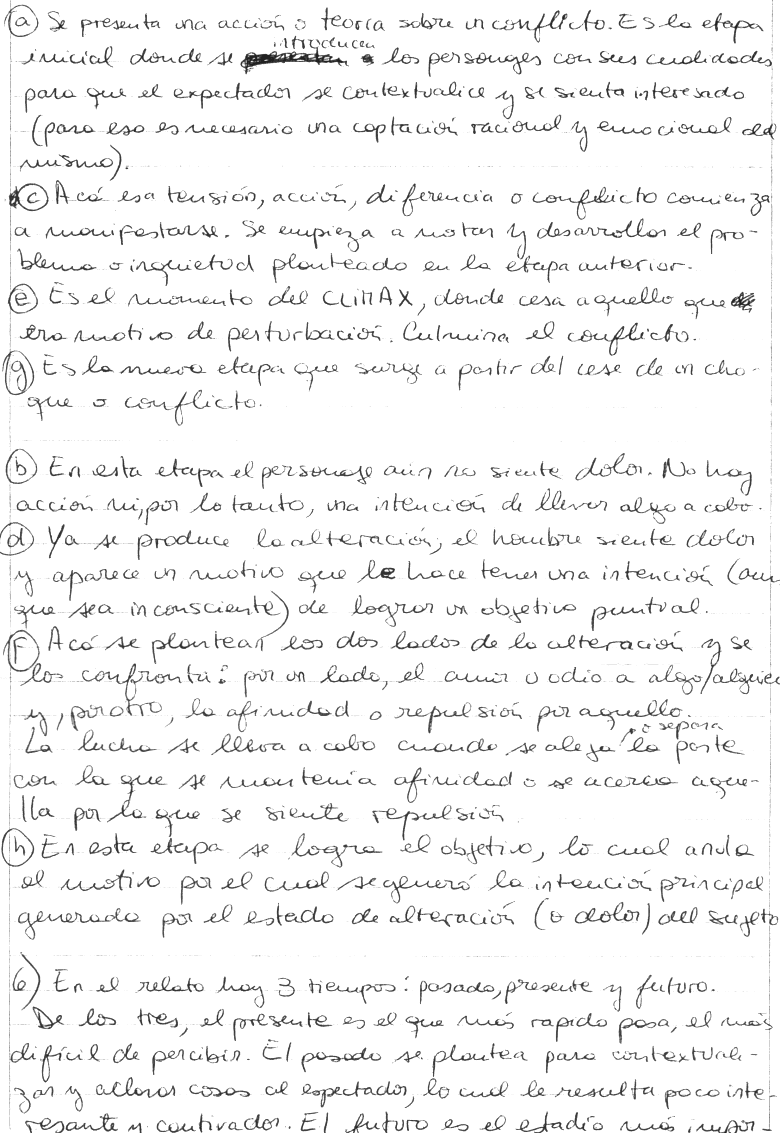 a) Se presenta una acción o teoría sobre un conflicto. Es la etapa
inicial donde se introducen los personajes con sus cualidades
para que el expectador se contextualice y se sienta interesado
(para eso es necesario una captación racional y emocional del
mismo).
c) Acá esa tensión, acción, diferencia o conflicto comienza
a manifestarse. Se empieza a notar y desarrollar el pro-
blema o inquietud planteado en la etapa anterior.
e) Es el momento del CLIMAX, donde cesa aquello que
era motivo de perturbación. Culmina el conflicto.
g) Es la nueva etapa que surge a partir del cese de un cho-
que o conflicto.
b) En esta etapa el personaje aún no siente dolor. No hay
acción ni, por lo tanto, una intención de llevar algo a cabo.
d) Ya se produce la alteración, el hombre siente dolor
y aparece un motivo que le hace tener una intención (aun
que sea inconsciente) de lograr un objetivo puntual.
f) Acá se plantean los dos lados de la alteración y se
los confronta: por un lado, el amor u odio a algo/alguien
y, por otro, la afinidad o repulsión por aquello.
La lucha se lleva a cabo cuando se aleja o separa la parte
con la que se mantenía afinidad o se acerca aque-
lla por la que se siente repulsión.
h) En esta etapa se logra el objetivo, lo cual anula
el motivo por el cual se generó la intención principal
generada por el estado de alteración (o dolor) del sujeto
6) En el relato hay 3 tiempos: pasado, presente y futuro.
De los tres, el presente es el que más rapido pasa, el más
difícil de percibir. El pasado se plantea para contextuali-
zar y aclarar cosas al espectador, lo cual le resulta poco inte-
resante y cautivador. El futuro es el estadío más impor-